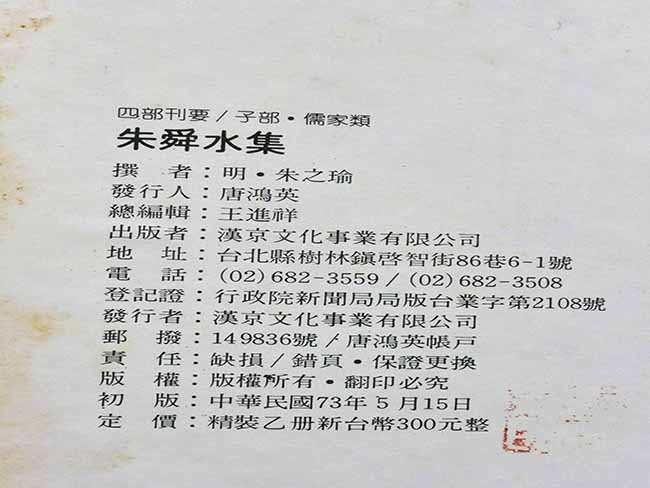 四部刊要/子部·儒家類
朱舜水集
撰 者：明·朱之瑜
發行人：唐鴻英
總編輯：王進祥
出版者：漢京文化事業有限公司
地 址：台北縣樹林鎮啓智街86巷6-1號
電 話：(02)682-3559/(02)682-3508
登記證：行政院新聞局局版台業字第2108號
發行者：漢京文化事業有限公司
郵 撥：149836號/唐鴻英帳戶
責 任：缺損/錯頁·保證更換
版 權：版權所有·翻印必究
初 版：中華民國73年5月15日
定 價：精裝乙册新台幣300元整